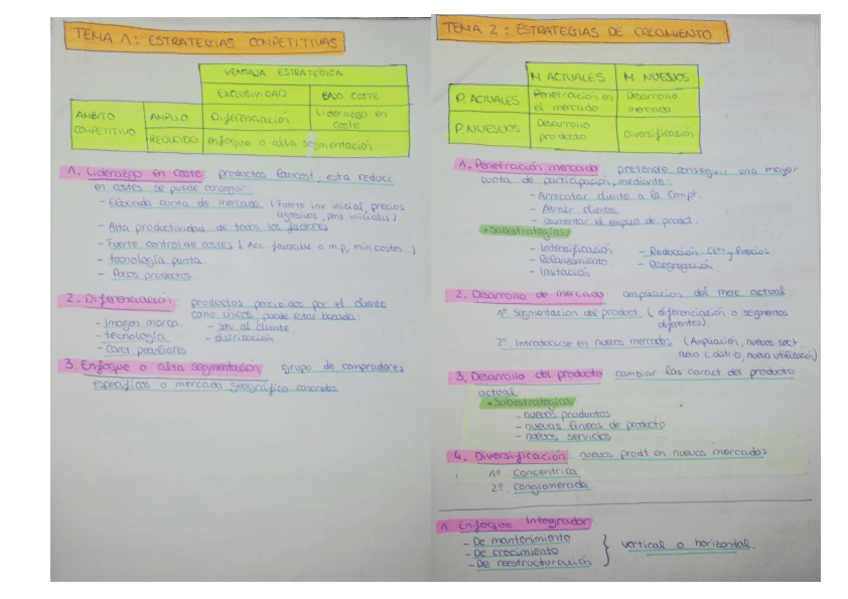 TEMA 1: ESTRATEGIAS COMPETITIVAS
VENTAJA ESTRATEGICA
EXCLUSIVIDAD BAJO COSTE
AMBITO COMPETITIVO AMPLIO Diferenciación Liderazgo en coste
REDUCIDO enfoque o alta segmentación
1. Liderazgo en coste: productos lowcost, esta reducc
en costes se puede conseguir:
- Elevada cuota de mercado (Fuerte inv inicial, precios
agresivos, perd iniciales)
- Alta productividad de todos los factores
- Fuerte control de costes (Acc favorable a m.p, min costes..)
- tecnología punta
- Pocos productos
2. Diferenciación: productos percibidos por el cliente
como únicos, puede estar basada:
- imagen marca - serv al cliente
- tecnología - distribución
- caract peculiares
3. Enfoque o alta segmentación: grupo de compradores
específicos o mercado geográfico concreto
TEMA 2: ESTRATEGIAS DE CRECIMIENTO
M. ACTUALES M. NUEVOS
P. ACTUALES Penetración en el mercado Desarrollo mercado
P. NUEVOS Desarrollo producto Diversificación
1. Penetración mercado: pretende conseguir una mayor
cuota de participación, mediante:
- Arrebatar cliente a la Compt.
- Atraer clientes
- aumentar el empleo de product.
Subestrategias:
- Intensificación - Reducción y Precios
- Relanzamiento - Disgregación
- Imitación
2. Desarrollo de mercado: ampliación del merc actual
1º Segmentación del product. (diferenciación o segmentos
diferentes)
2º Introducirse en nuevos mercados (Ampliación, nuevos sect.
nuevo c.distrib, nueva utilización)
3. Desarrollo del producto: cambiar las caract del producto
actual
Subestrategias
- nuevos productos
- nuevas líneas de producto
- nuevos servicios
4. Diversificación: nuevos prodt en nuevos mercados
1º Concentrica
2º Conglomerada
1. Enfoque Integrador
- De mantenimiento
- De crecimiento } vertical o horizontal
- De reestructuración